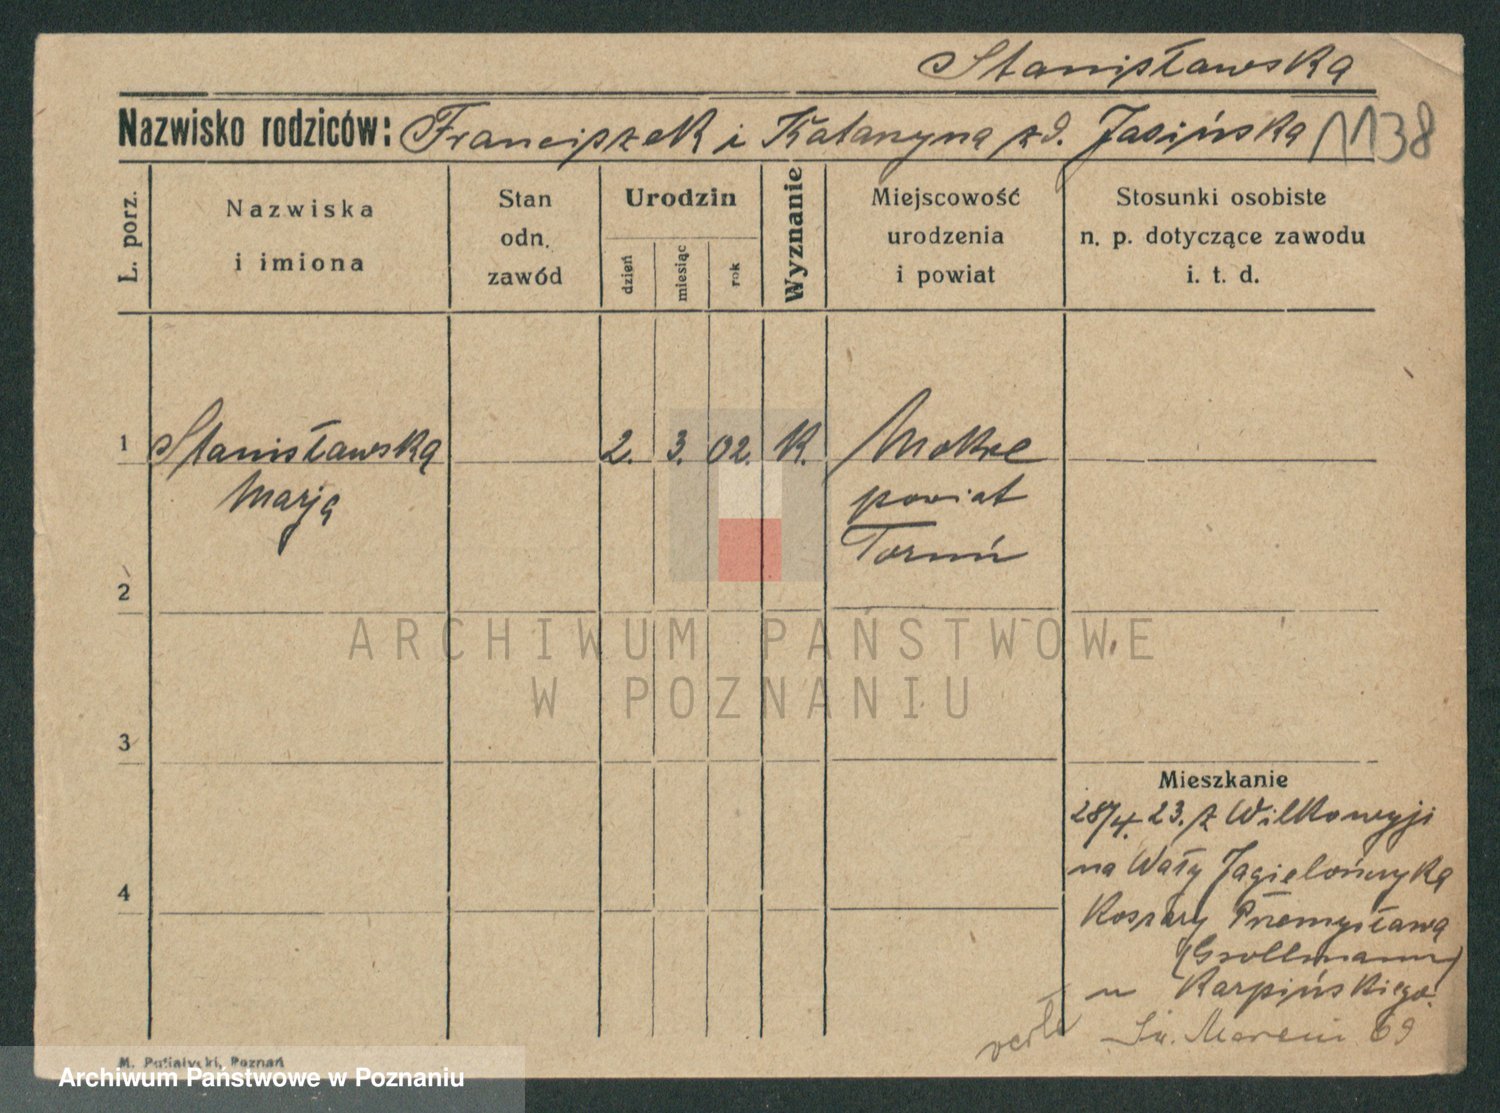 Stanisławska
Nazwisko rodziców: Franciszek i Katarzyna zd. Jasińska 1138
L. porz.
Nazwiska
i imiona
Stan
odn.
zawód
Urodzin
dzień
miesiąc
rok
Wyznanie
Miejscowość
urodzenia
i powiat
Stosunki osobiste
n. p. dotyczące zawodu
i. t. d.
1 Stanisławska 2. 3. 02. K. Mokre
Marja powiat
Toruń
2
ARCHIWUM PAŃSTWOWE
W POZNANIU
3
Mieszkanie
28/4. 23. z Wilkowyji
na Wały Jagielończyka
4
Koszary Przemysława
(Grollmann)
u Karpińskiego.
Św. Marcin 69
M. Putiatycki, Poznań
Archiwum Państwowe w Poznaniu